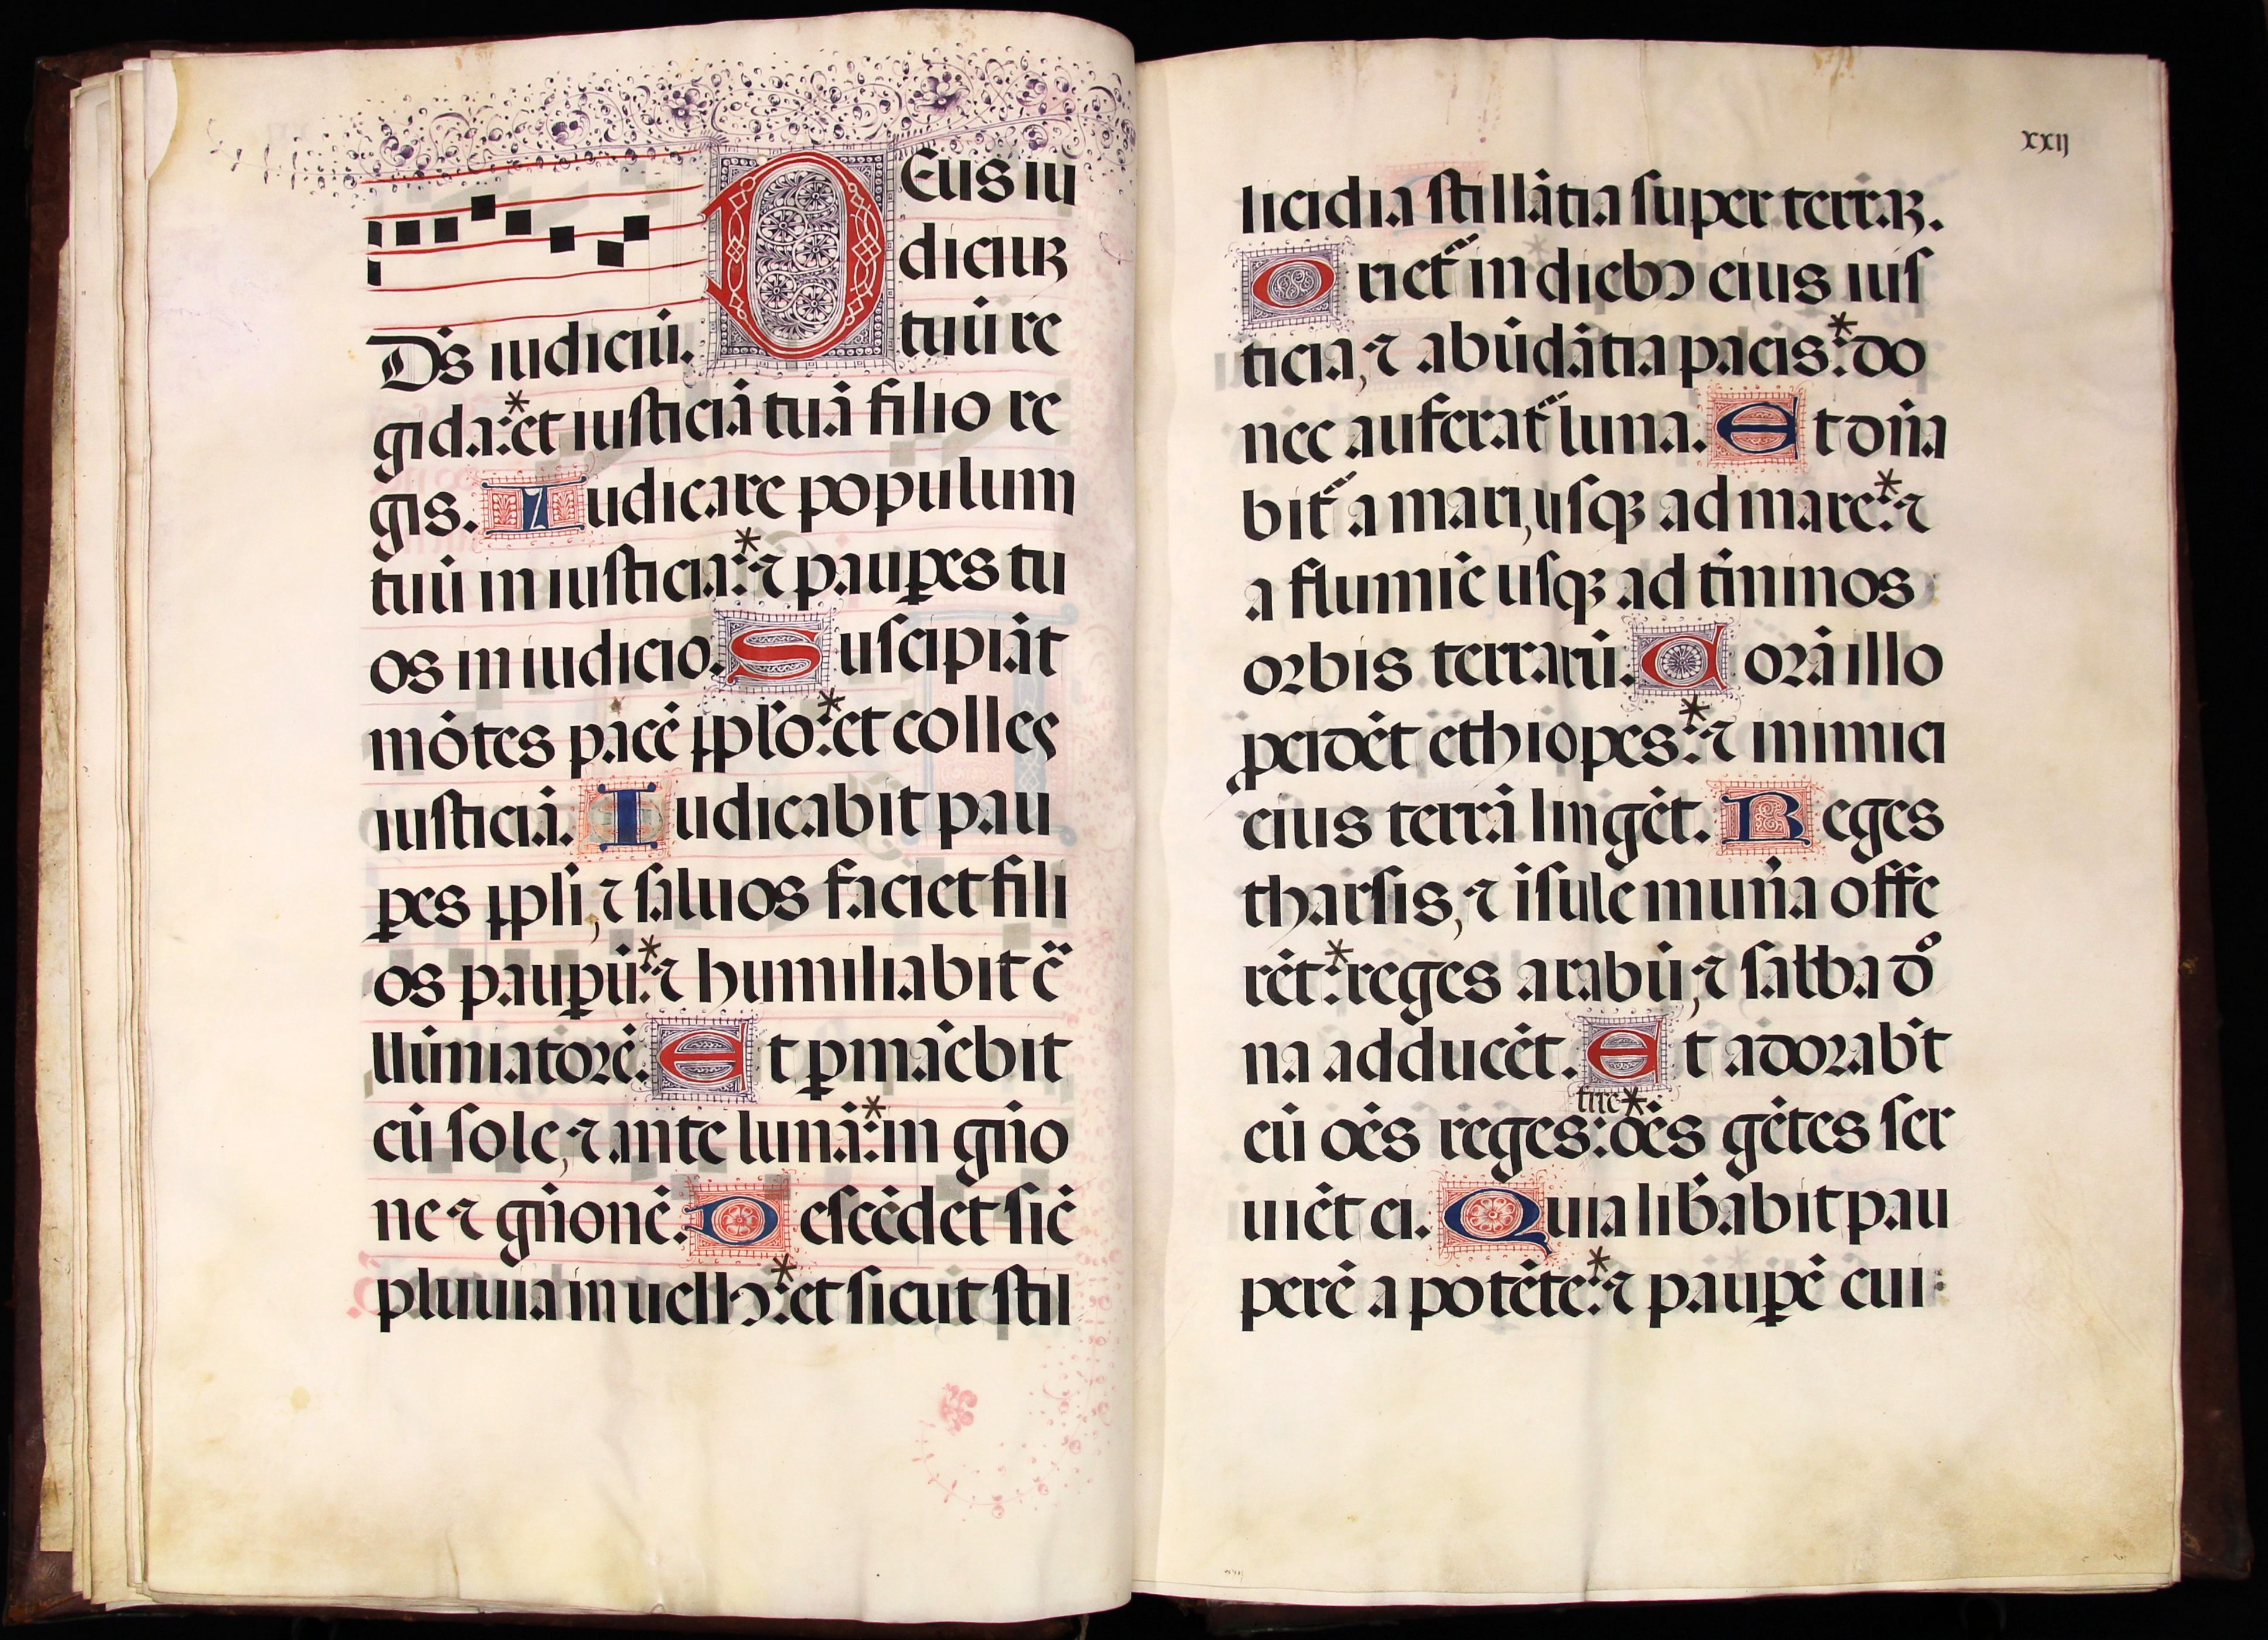 DEus iu
diciuꝫ
Ds̄ iudiciū. tuū re
gi da: * et iusticiā tuā filio re
gis. Iudicare populum
tuū in iusticia: * ⁊ pauꝑes tu
os in iudicio. Suscipiāt
mōtes pacē ꝓplo: * et colles
iusticiā. Iudicabit pau
ꝑes ꝓpli, ⁊ saluos faciet fili
os pauꝑū: * ⁊ humiliabit c̄
llūniatorē. Et ꝑmāebit
cū sole, ⁊ ante lunā: * in gn̄o
ne ⁊ gn̄onē. Descēdet sic̄
pluuia in uellꝰ: * et sicut stil
xxij
licidia stillātia super terraꝫ.
Oriet᷑ in diebꝰ eius ius
ticia, ⁊ abūdātia pacis: * do
nec auferat᷑ luna. Et dn̄a
bit᷑ a mari, usqꝫ ad mare: * ⁊
a flumīe usqꝫ ad t̄minos
orbis terrarū. Corā illo
ꝓcidēt ethiopes: * ⁊ inimici
eius terrā lingēt. Reges
tharsis, ⁊ īsule mun̄a offe
rēt: * reges arabū, ⁊ sabba do
na adducēt. Et adorab̄t
tr̄e *
eū oēs reges: oēs gētes ser
uiēt ei. Quia lib̄abit pau
perē a potēte: * ⁊ pauꝑē cui